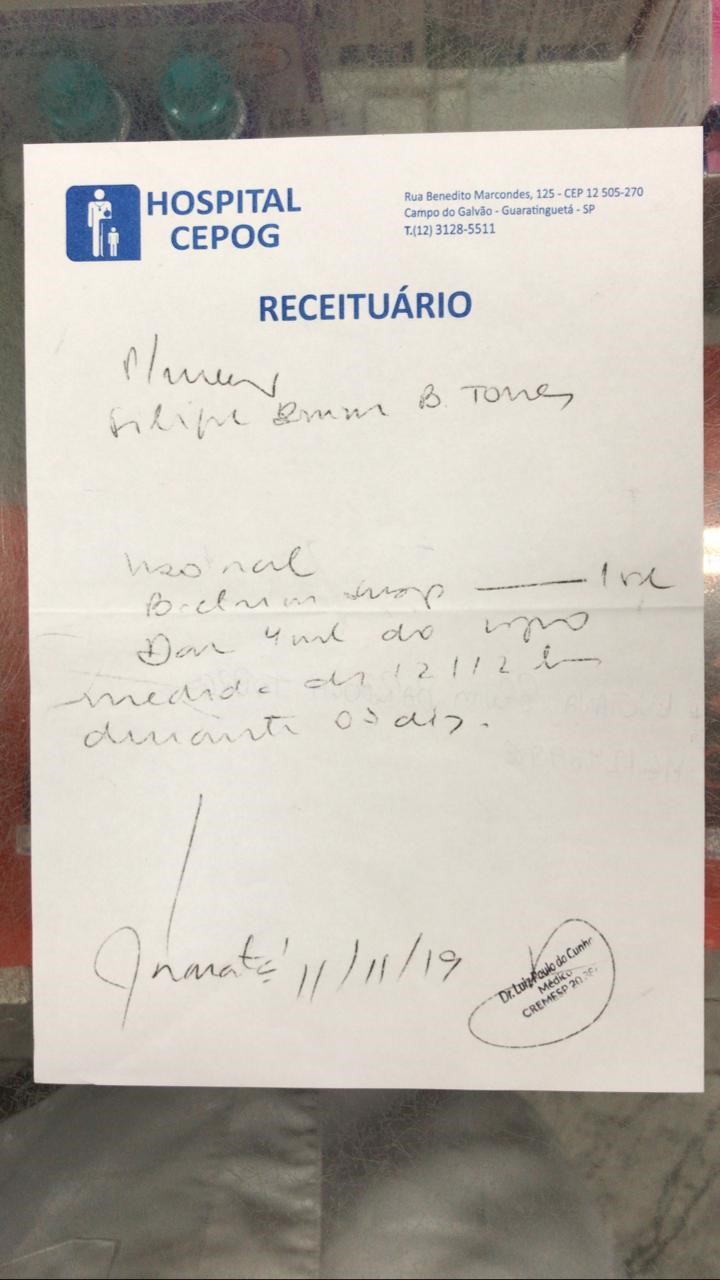 HOSPITAL
CEPOG
Rua Benedito Marcondes, 125 - CEP 12 505-270
Campo do Galvão - Guaratinguetá - SP
T.(12) 3128-5511
RECEITUÁRIO
P/ menor
Filipe B. Torres
Uso oral
Bactrim susp 1 vd
Dar 4 ml do
medida de 12/12 h
durante 05 dias.
Guaratá 11/11/19
Dr. Luiz Paulo do Cunha
Médico
CREMESP